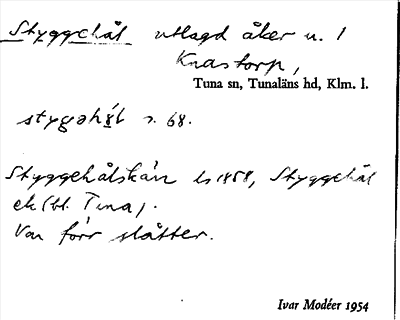 Styggehål utlagd åker u. 1
Knastorp,
Tuna sn, Tunaläns hd, Klm. l.
s. 68.
Styggehålskärr ls 1858, Styggehål
ek (bl. Tuna).
Var förr slåtter.
Ivar Modéer 1954